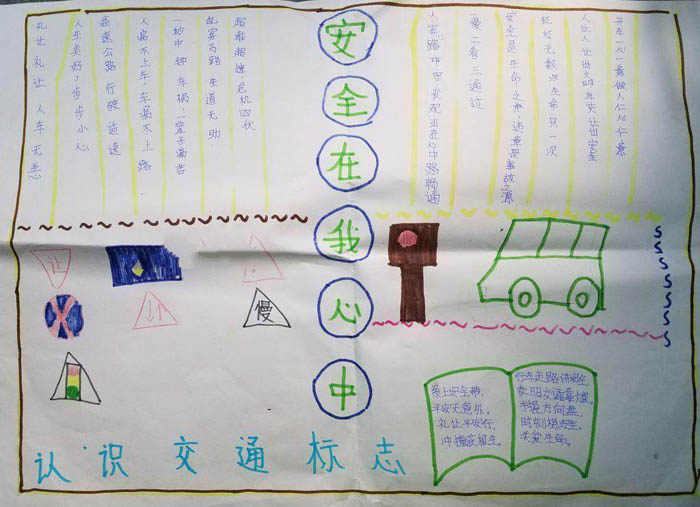 安全在我心中
开车一心一意做人仁心仁意
人让人让出文明车让车让出安全
红灯无数次生命只一次
安全是生命之本,违章是事故之源
一慢二看三通过
人在路中安
中路畅通
超载超速,危机四伏
故雾马路失道无助
一秒中钟车祸,一辈子痛苦
人病不上车,车病不上路.
高速公路行驶
人生美好,步步小心
礼让礼让人车无恙
让
慢
系上安全带,
平安无意
礼让平安行,
行车走路讲安全
文明交通
方向盘,
时刻想安全,
关爱生命。
认识交通标志